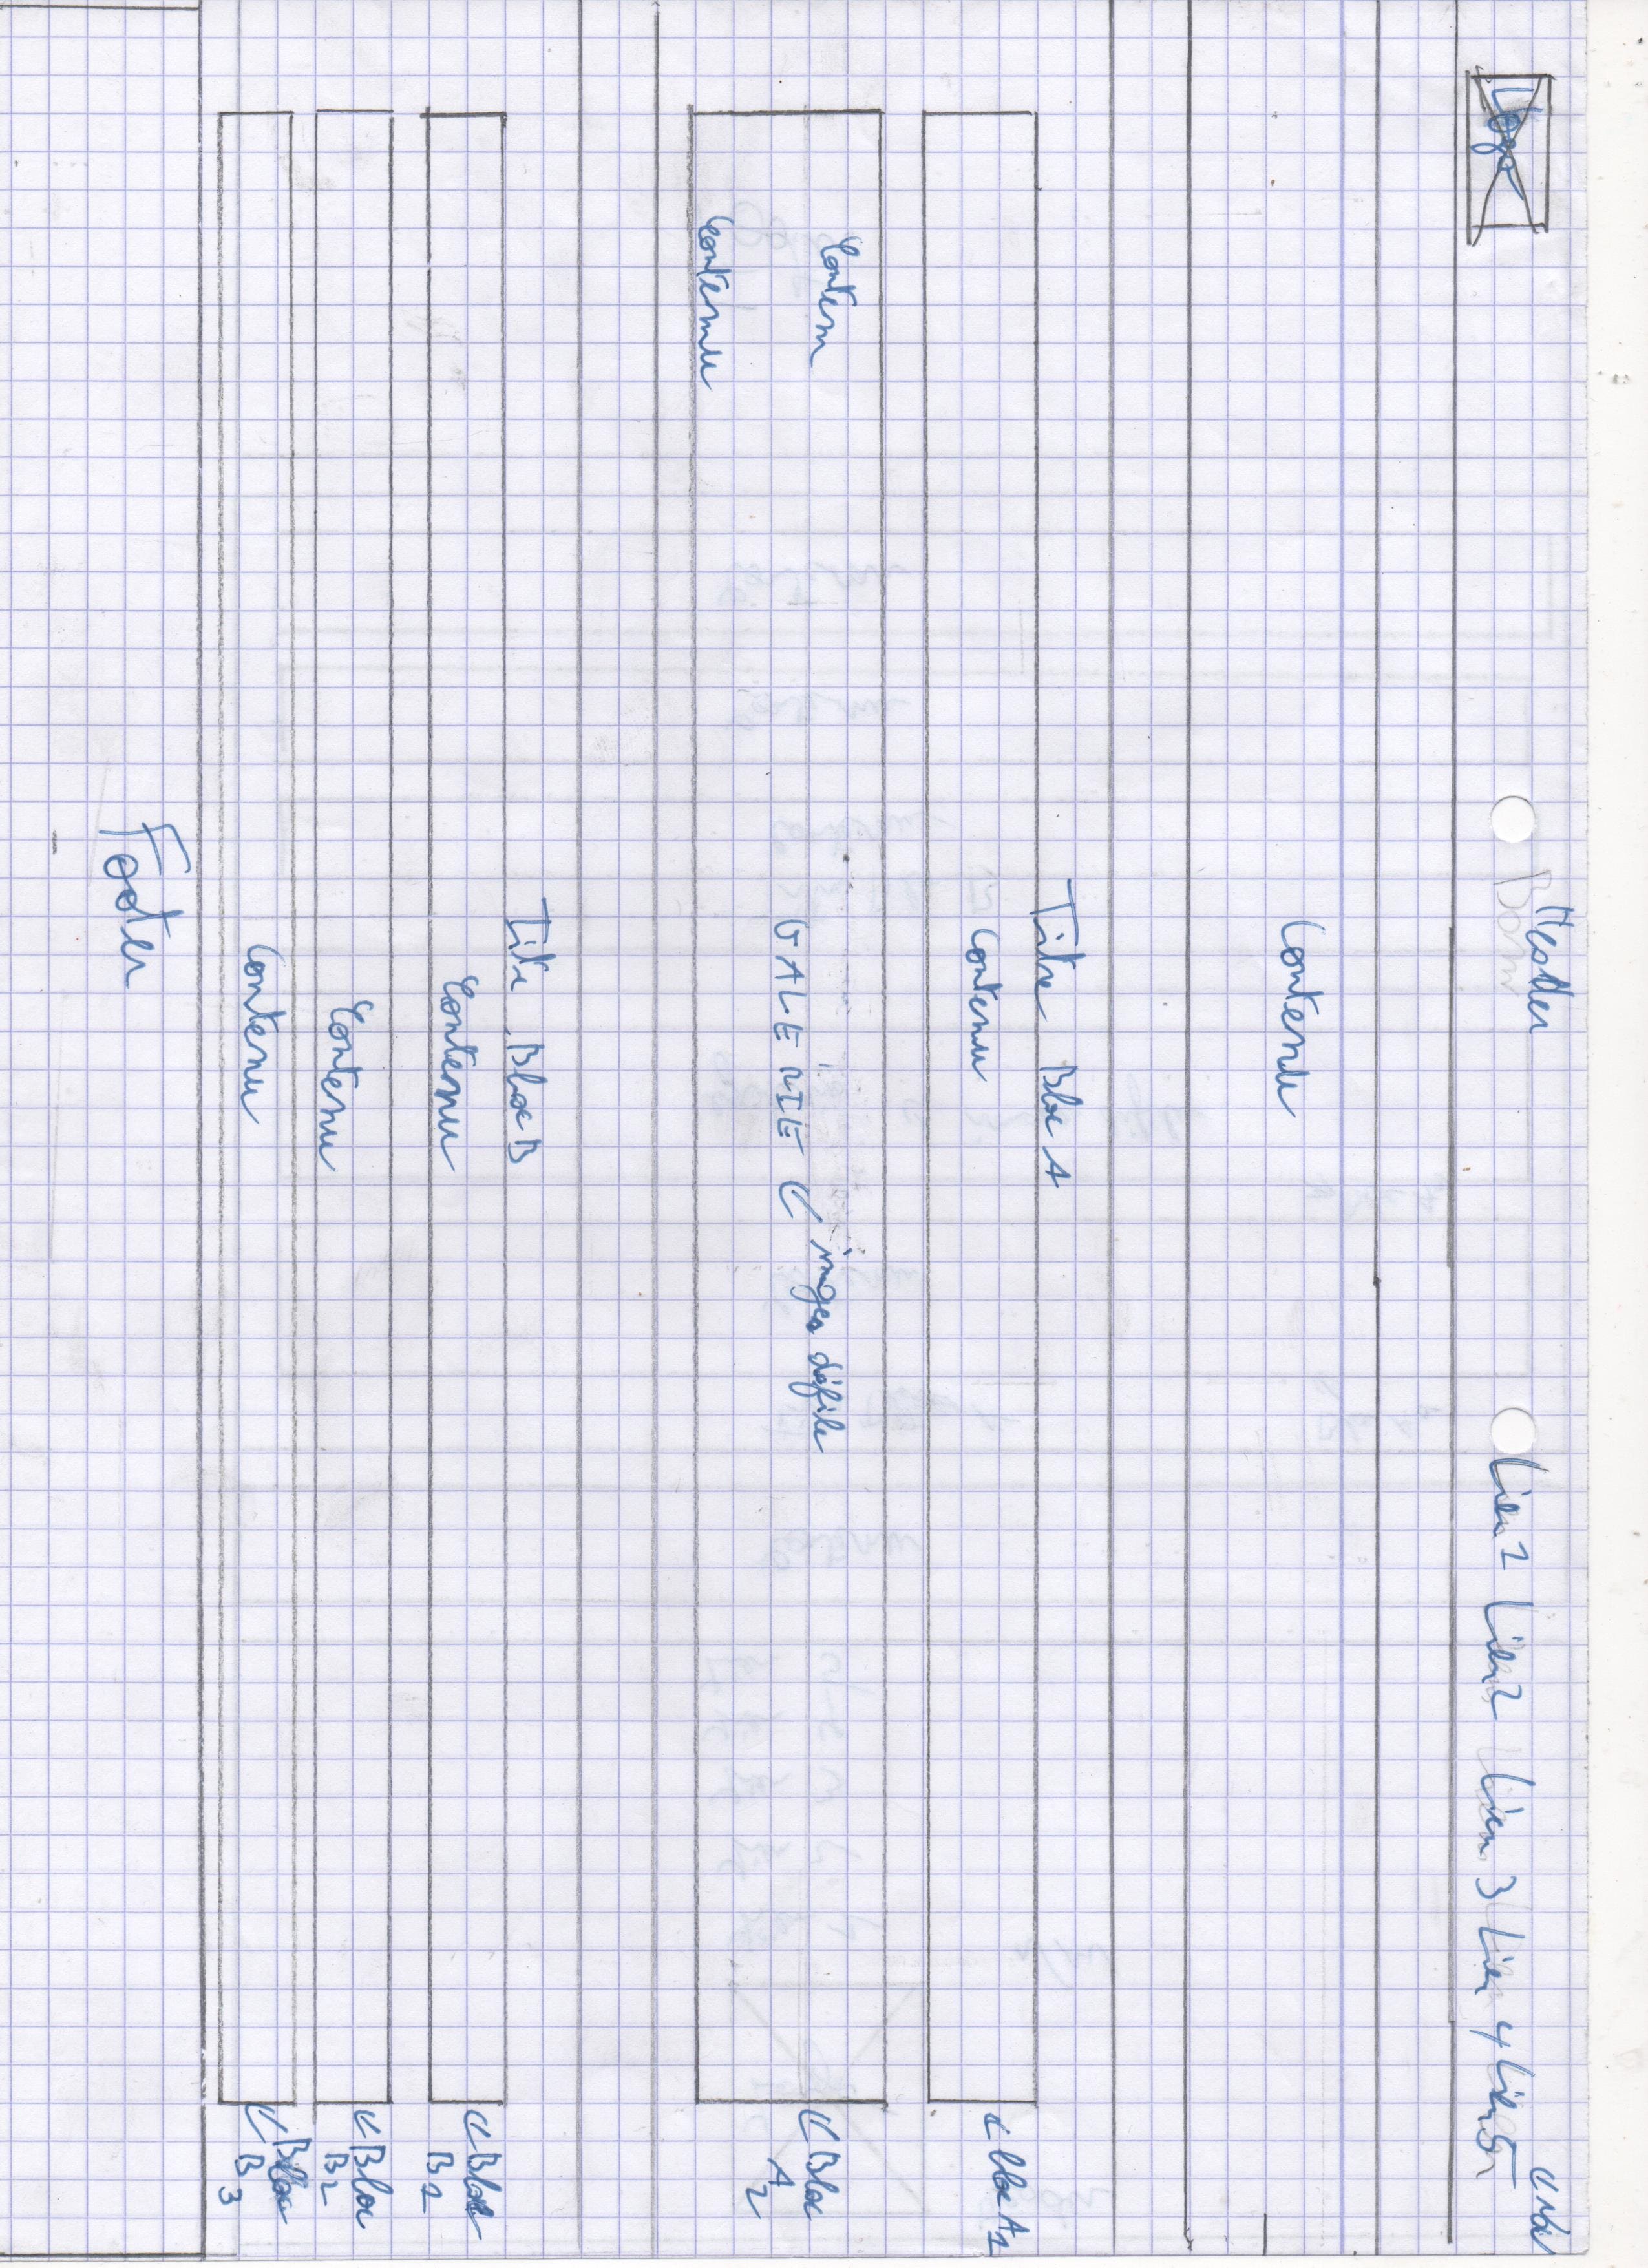 Logo
Header
Lien 1 Lien 2 Lien 3 Lien 4 Lien 5
Nav
Contenu
Titre Bloc A
Contenu
bloc A1
Contenu
GALERIE
images défile
Bloc
A2
Contenu
Titre Bloc B
Contenu
Bloc
B1
Contenu
Bloc
B2
Contenu
Bloc
B3
Footer